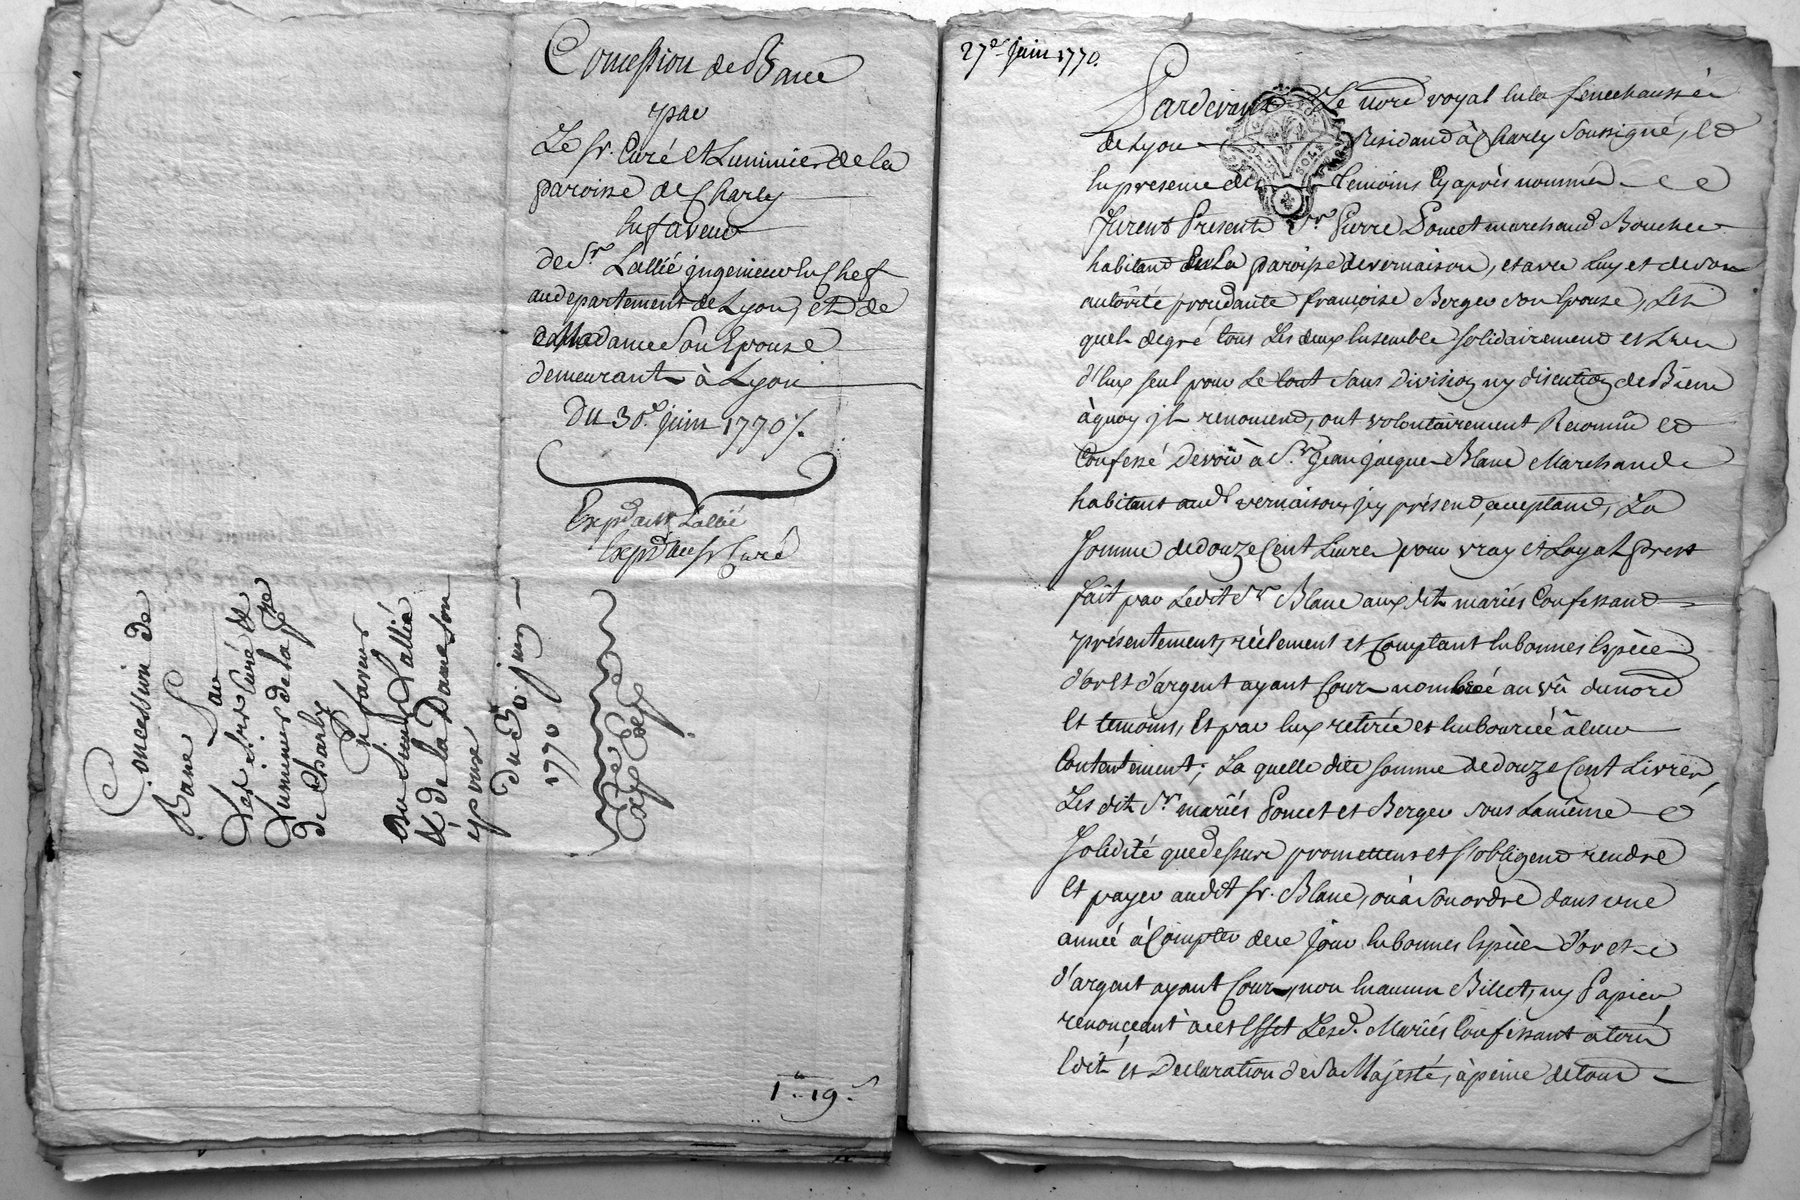 Concession de Banc
par
Le sr. Curé et Luminier de la
paroisse de Charly
en faveur
de Sr. Lallié ingenieur en Chef
au departement de Lyon, et de
Madame Son Epouse
demeurant à Lyon
Du 30e. juin 1770 /.
Expd. au sr Lallié
Expd. au sr Curé
Concession de
Banc
Par
Les Sieur Curé &
Luminier de la psse
de Charly
En faveur
Du Sieur Lallié
& de la Dame son
epouse
Du 30. juin
1770
Exp
Exp
1 " 19 s
27e. Juin 1770.
Pardevant Le nore royal en la senechaussée
de Lyon Residand à Charly Soussigné, et
en presence des temoins Cy après nommés
Furent Presents Sr. Pierre Poncet marchand Boucher
habitand en La paroisse de vernaison, et avec Luy et de son
autôrité procédante françoise Berger Son Epouse, Les
quels de gré tous Les deux Ensemble solidairement et L'un
d'Eux seul pour Le tout Sans Division ny discution de Biens
à quoy ils renoncend, ont volontairement Reconnû et
Confessé Devoir à Sr. Jean Jacques Blanc Marchand
habitant aud. vernaison icy présend, acceptand, La
Somme de douze Cent Livres pour vray et Loyal prest
fait par Ledit Sr. Blanc aux dits mariés Confessand
présentement, réelement et Comptant En bonnes Espèces
d'or et d'argent ayant Cours nombrée au vû du nore
Et temoins, Et par Eux retirée et Emboursée à leur
Contentement ; La quelle dite somme de douze Cent Livres
Les dits Srs. mariés Poncet et Berger sous La même
Solidité que dessus promettent et s'obligent rendre
Et payer audit sr. Blanc, ou à Son ordre dans une
année à Compter de ce jour En bonnes Espèces d'or et
d'argent ayant Cours, non En aucun Billets, ny Papiers
renonçant à cet Effet Lesd. Mariés Confessant à tous
Edits et Declaration de Sa Majesté, à peine de tous